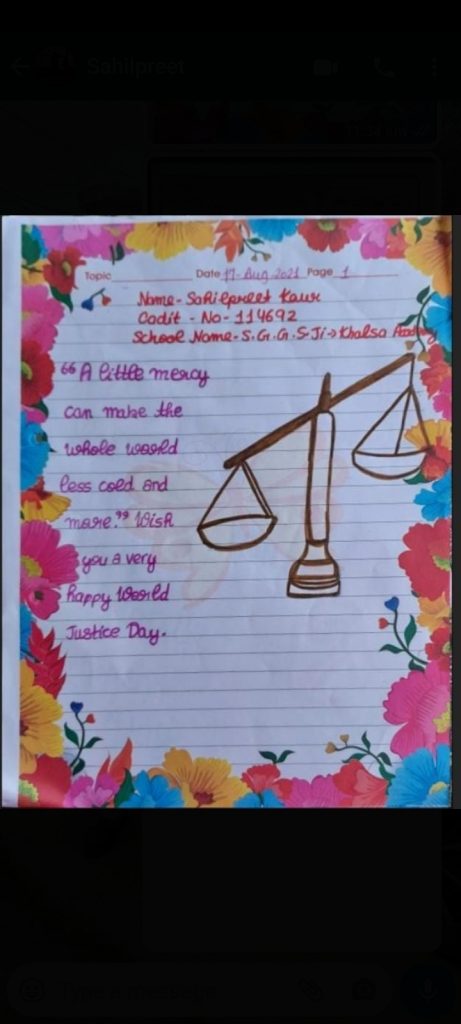 Sahilpreet
Topic Date 17-Aug 2021 Page 1
Name- Sahilpreet Kaur
Cadit - No- 114692
School Name- S.G.G.S Ji → Khalsa
“ A little mercy
can make the
whole world
less cold and
more.” Wish
you a very
happy World
Justice Day.
Type a message